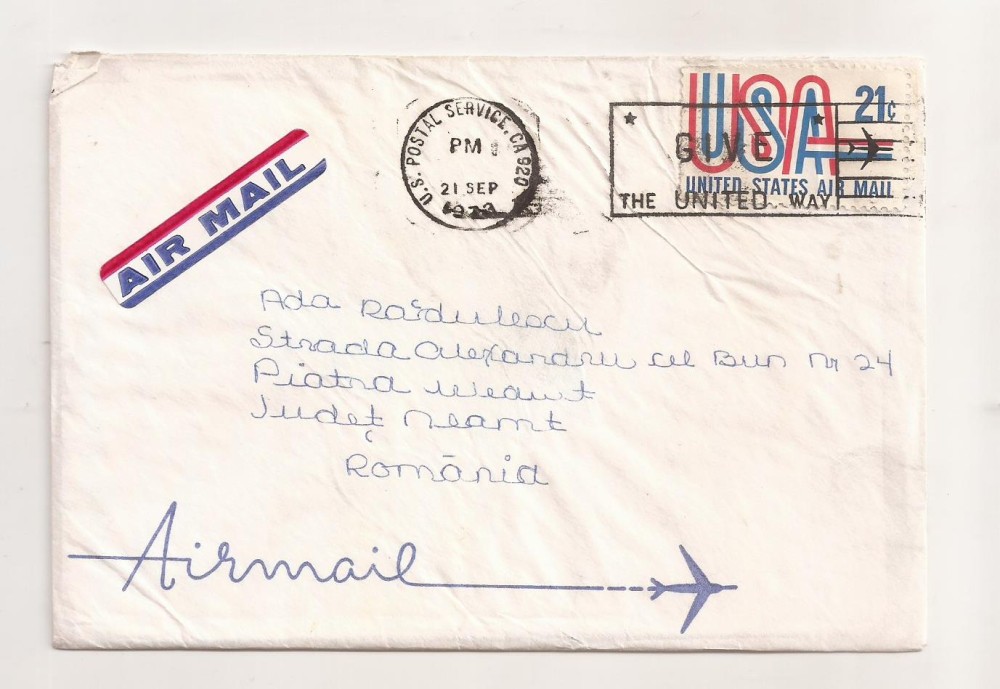 U.S. POSTAL SERVICE, CA 920
PM
21 SEP
USA 21¢
UNITED STATES AIR MAIL
GIVE
THE UNITED WAY
AIR MAIL
Ada Raïdulescu
Strada Alexandru cel Bun Nr 24
Piatra
Județ Neamt
România
Airmail